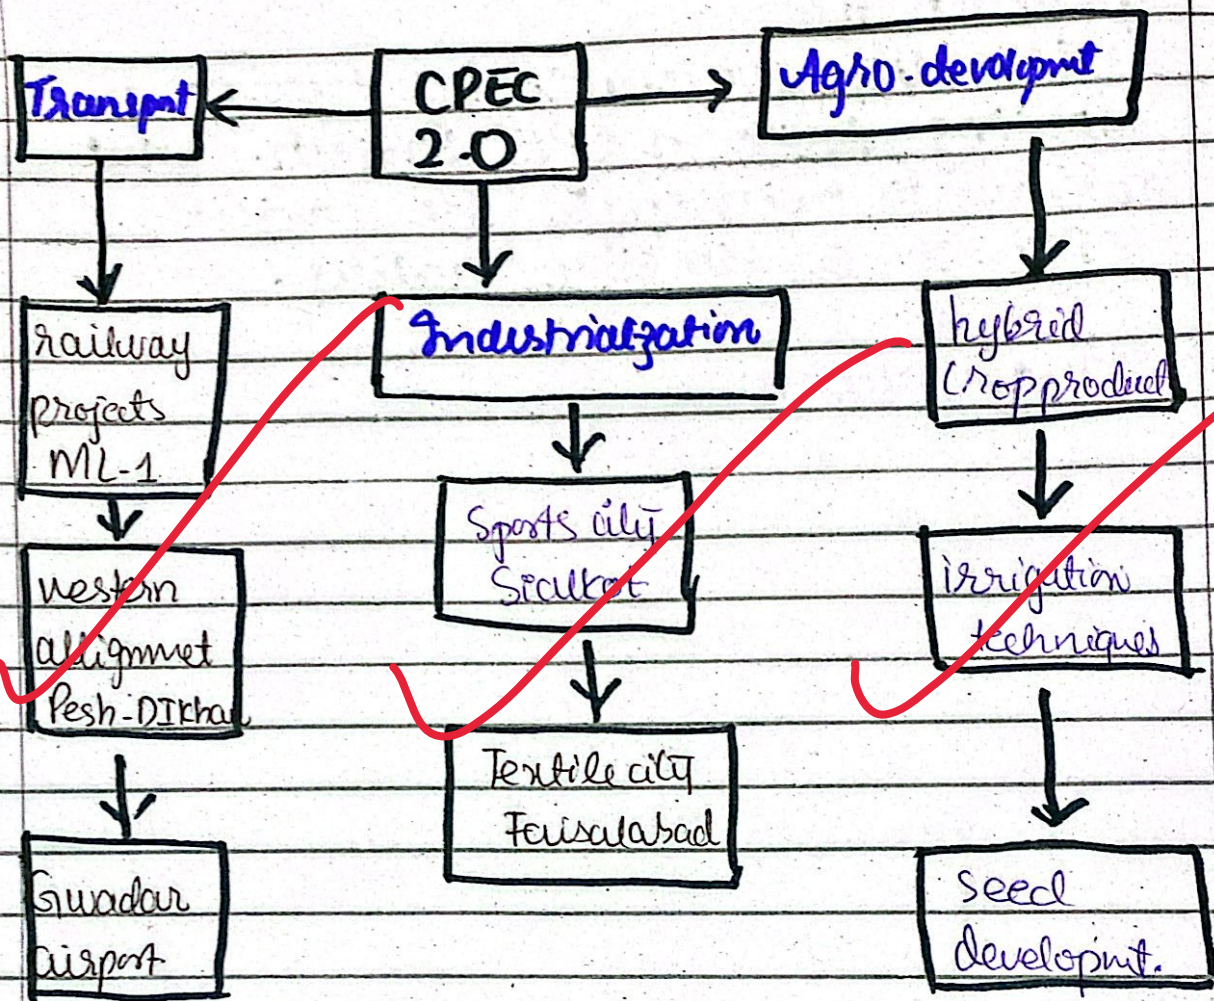 Transport
CPEC
2.0
Agro-devolopmt
railway
projects
ML-1
western
allignmet
Pesh-DIKhan
Gwadar
airport
Industrialzation
Sports city
Sialkot
Textile city
Faisalabad
hybrid
Crop product
irrigation
techniques
seed
developmt.